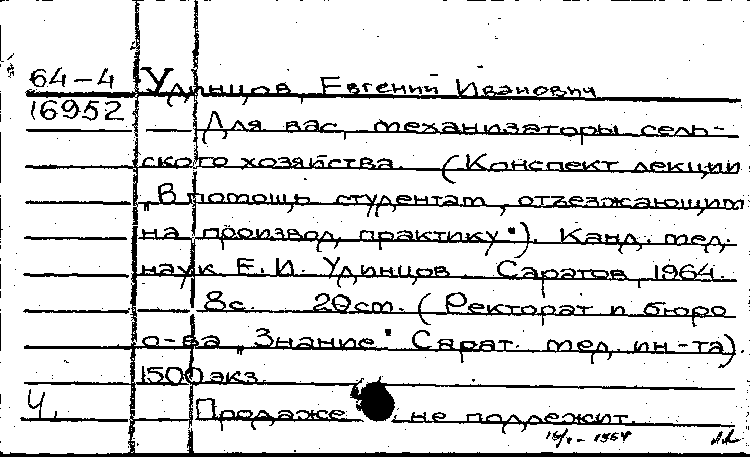 64-4 Удинцов, Евгений Иванович
16952
Для вас, механизаторы сель-
ского хозяйства. (Конспект лекции
„В помощь студентам, отъезжающим
на производ. практику"). Канд. мед.
наук Е. И. Удинцов. Саратов, 1964.
8с. 20см. (Ректорат и бюро
о-ва „Знание" Сарат. мед. ин-та).
1500 экз.
Ч. Продаже не подлежит.